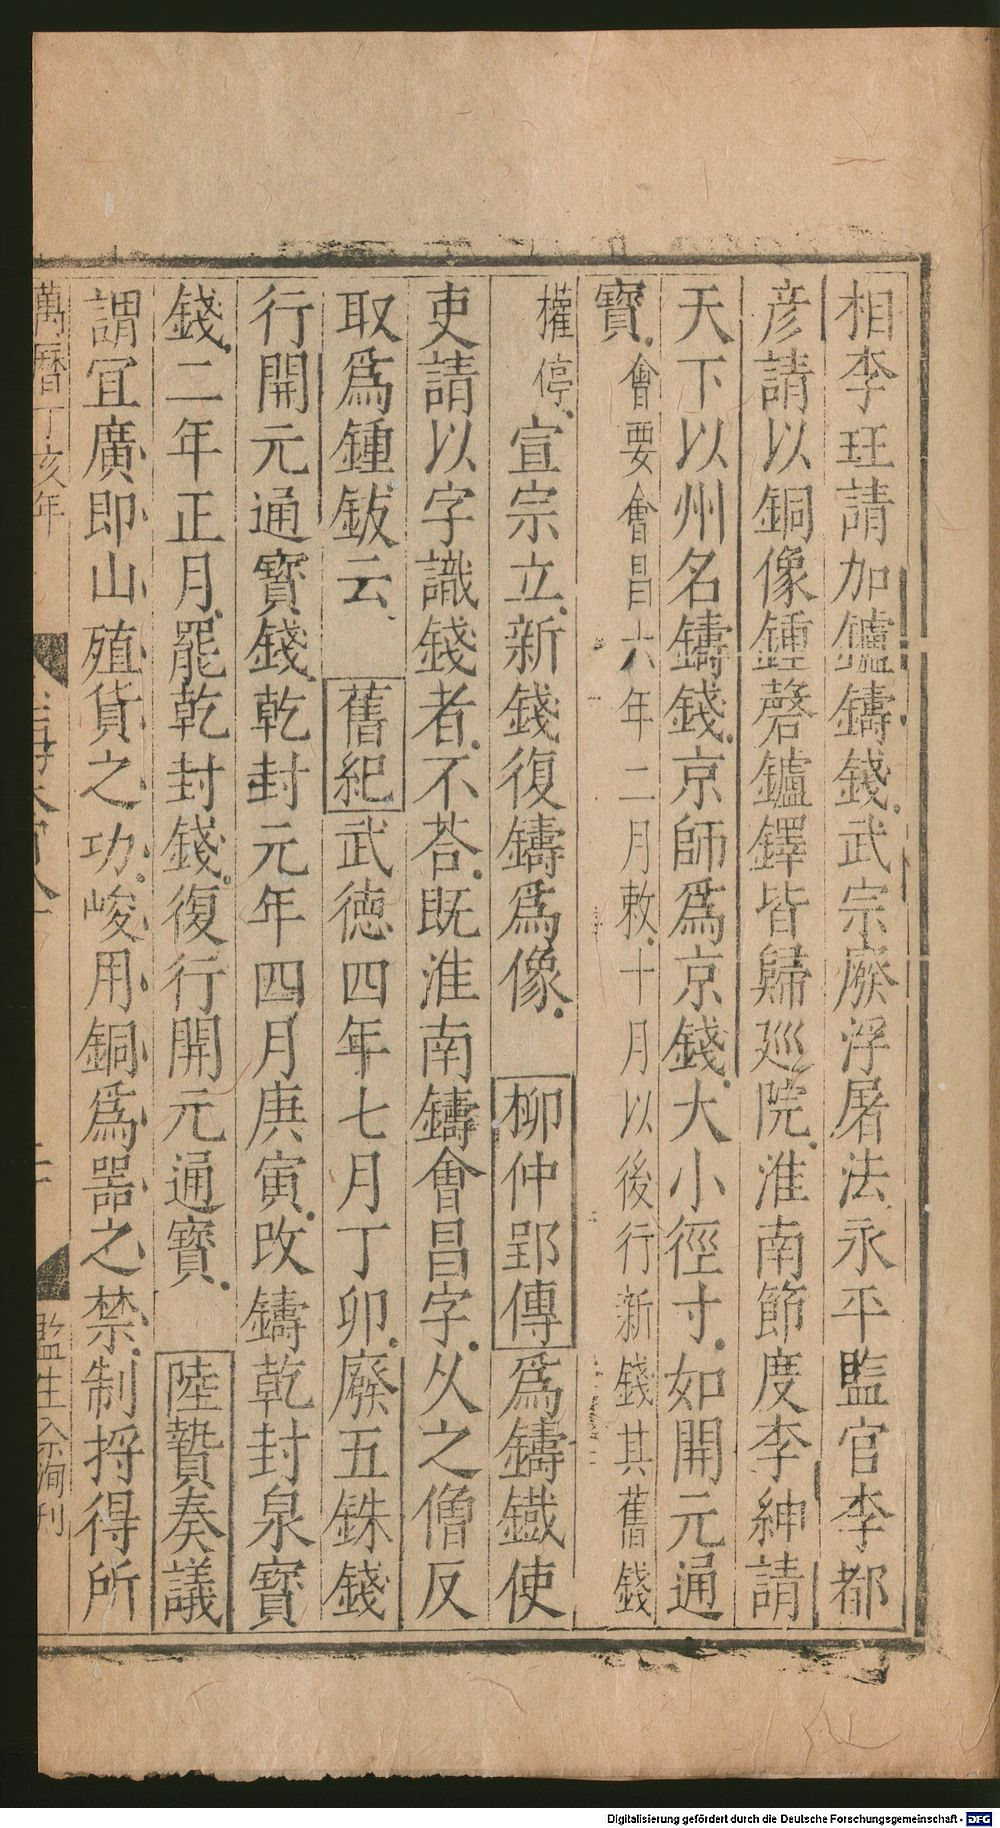 相李珏請加鑪鑄錢武宗廢浮屠法永平監官李都
彦請以銅像鍾磬鑪鐸皆歸廵院淮南節度李紳請
天下以州名鑄錢京師爲京錢大小徑寸如開元通
寶會要會昌六年二月敕十月以後行新錢其舊錢
權停宣宗立新錢復鑄爲像 柳仲郢傳爲鑄鐵使
吏請以字識錢者不荅既淮南鑄會昌字久之僧反
取爲鍾鈸云 舊紀武德四年七月丁卯廢五銖錢
行開元通寳錢乾封元年四月庚寅改鑄乾封泉寳
錢二年正月罷乾封錢復行開元通寳 陸贄奏議
謂宜廣即山殖貨之功峻用銅爲器之禁制捋得所
萬曆丁亥年
監生徐洵刋
Digitalisierung gefördert durch die Deutsche Forschungsgemeinschaft - DFG